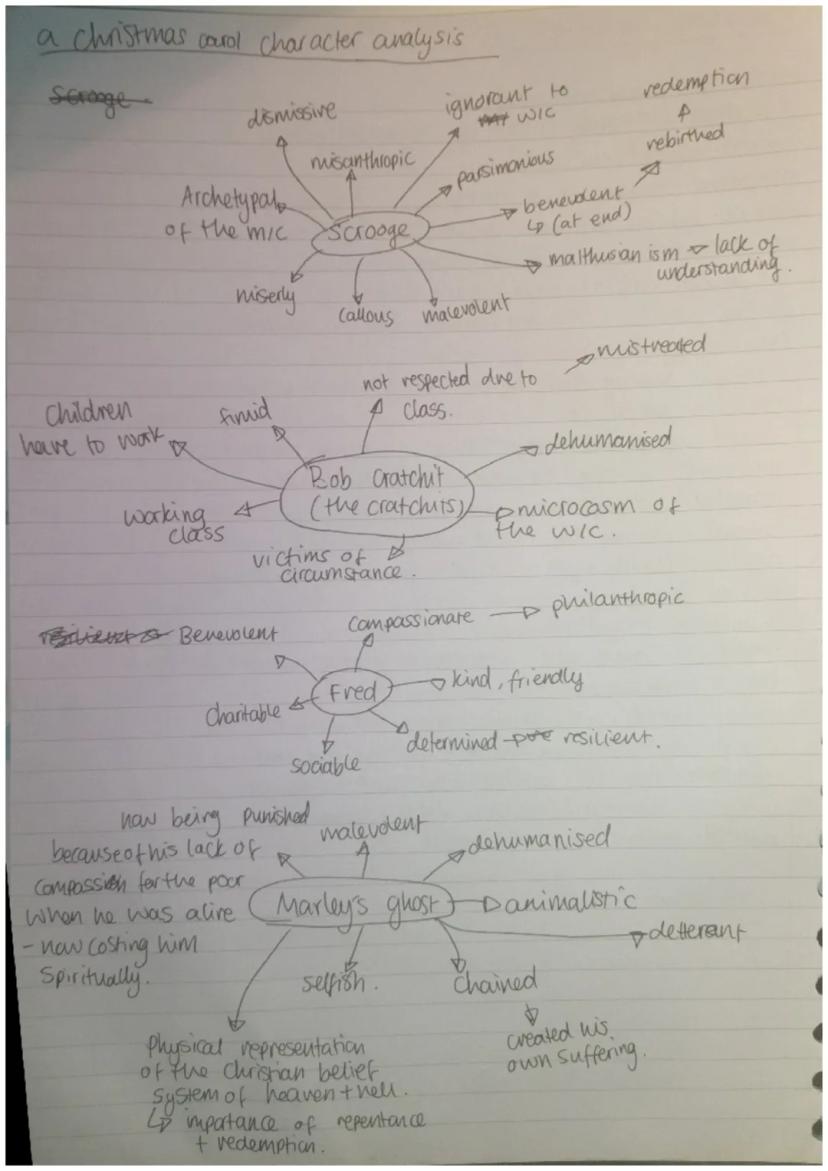 a christmas carol character analysis
Scrooge
dismissive
misanthropic
ignorant to
w/c
parsimonious
redemption
rebirthed
benevolent
↳ (at end)
Archetypal
of the m/c
Scrooge
malthusian ism → lack of
understanding.
miserly
callous
malevolent
mistreated
not respected due to
class.
Children
have to work
timid
dehumanised
Bob Cratchit
(the cratchits)
working
class
microcasm of
the w/c.
victims of
circumstance.
compassionate → philanthropic
Benevolent
kind, friendly
Fred
charitable
determined resilient.
sociable
now being punished
because of his lack of
compassion for the poor
when he was alive
- now costing him
spiritually.
malevolent
dehumanised
Marley's ghost
animalistic
detterant
selfish.
Chained
created his
own suffering.
Physical representation
of the Christian belief
system of heaven + hell.
↳ importance of repentance
+ redemption.